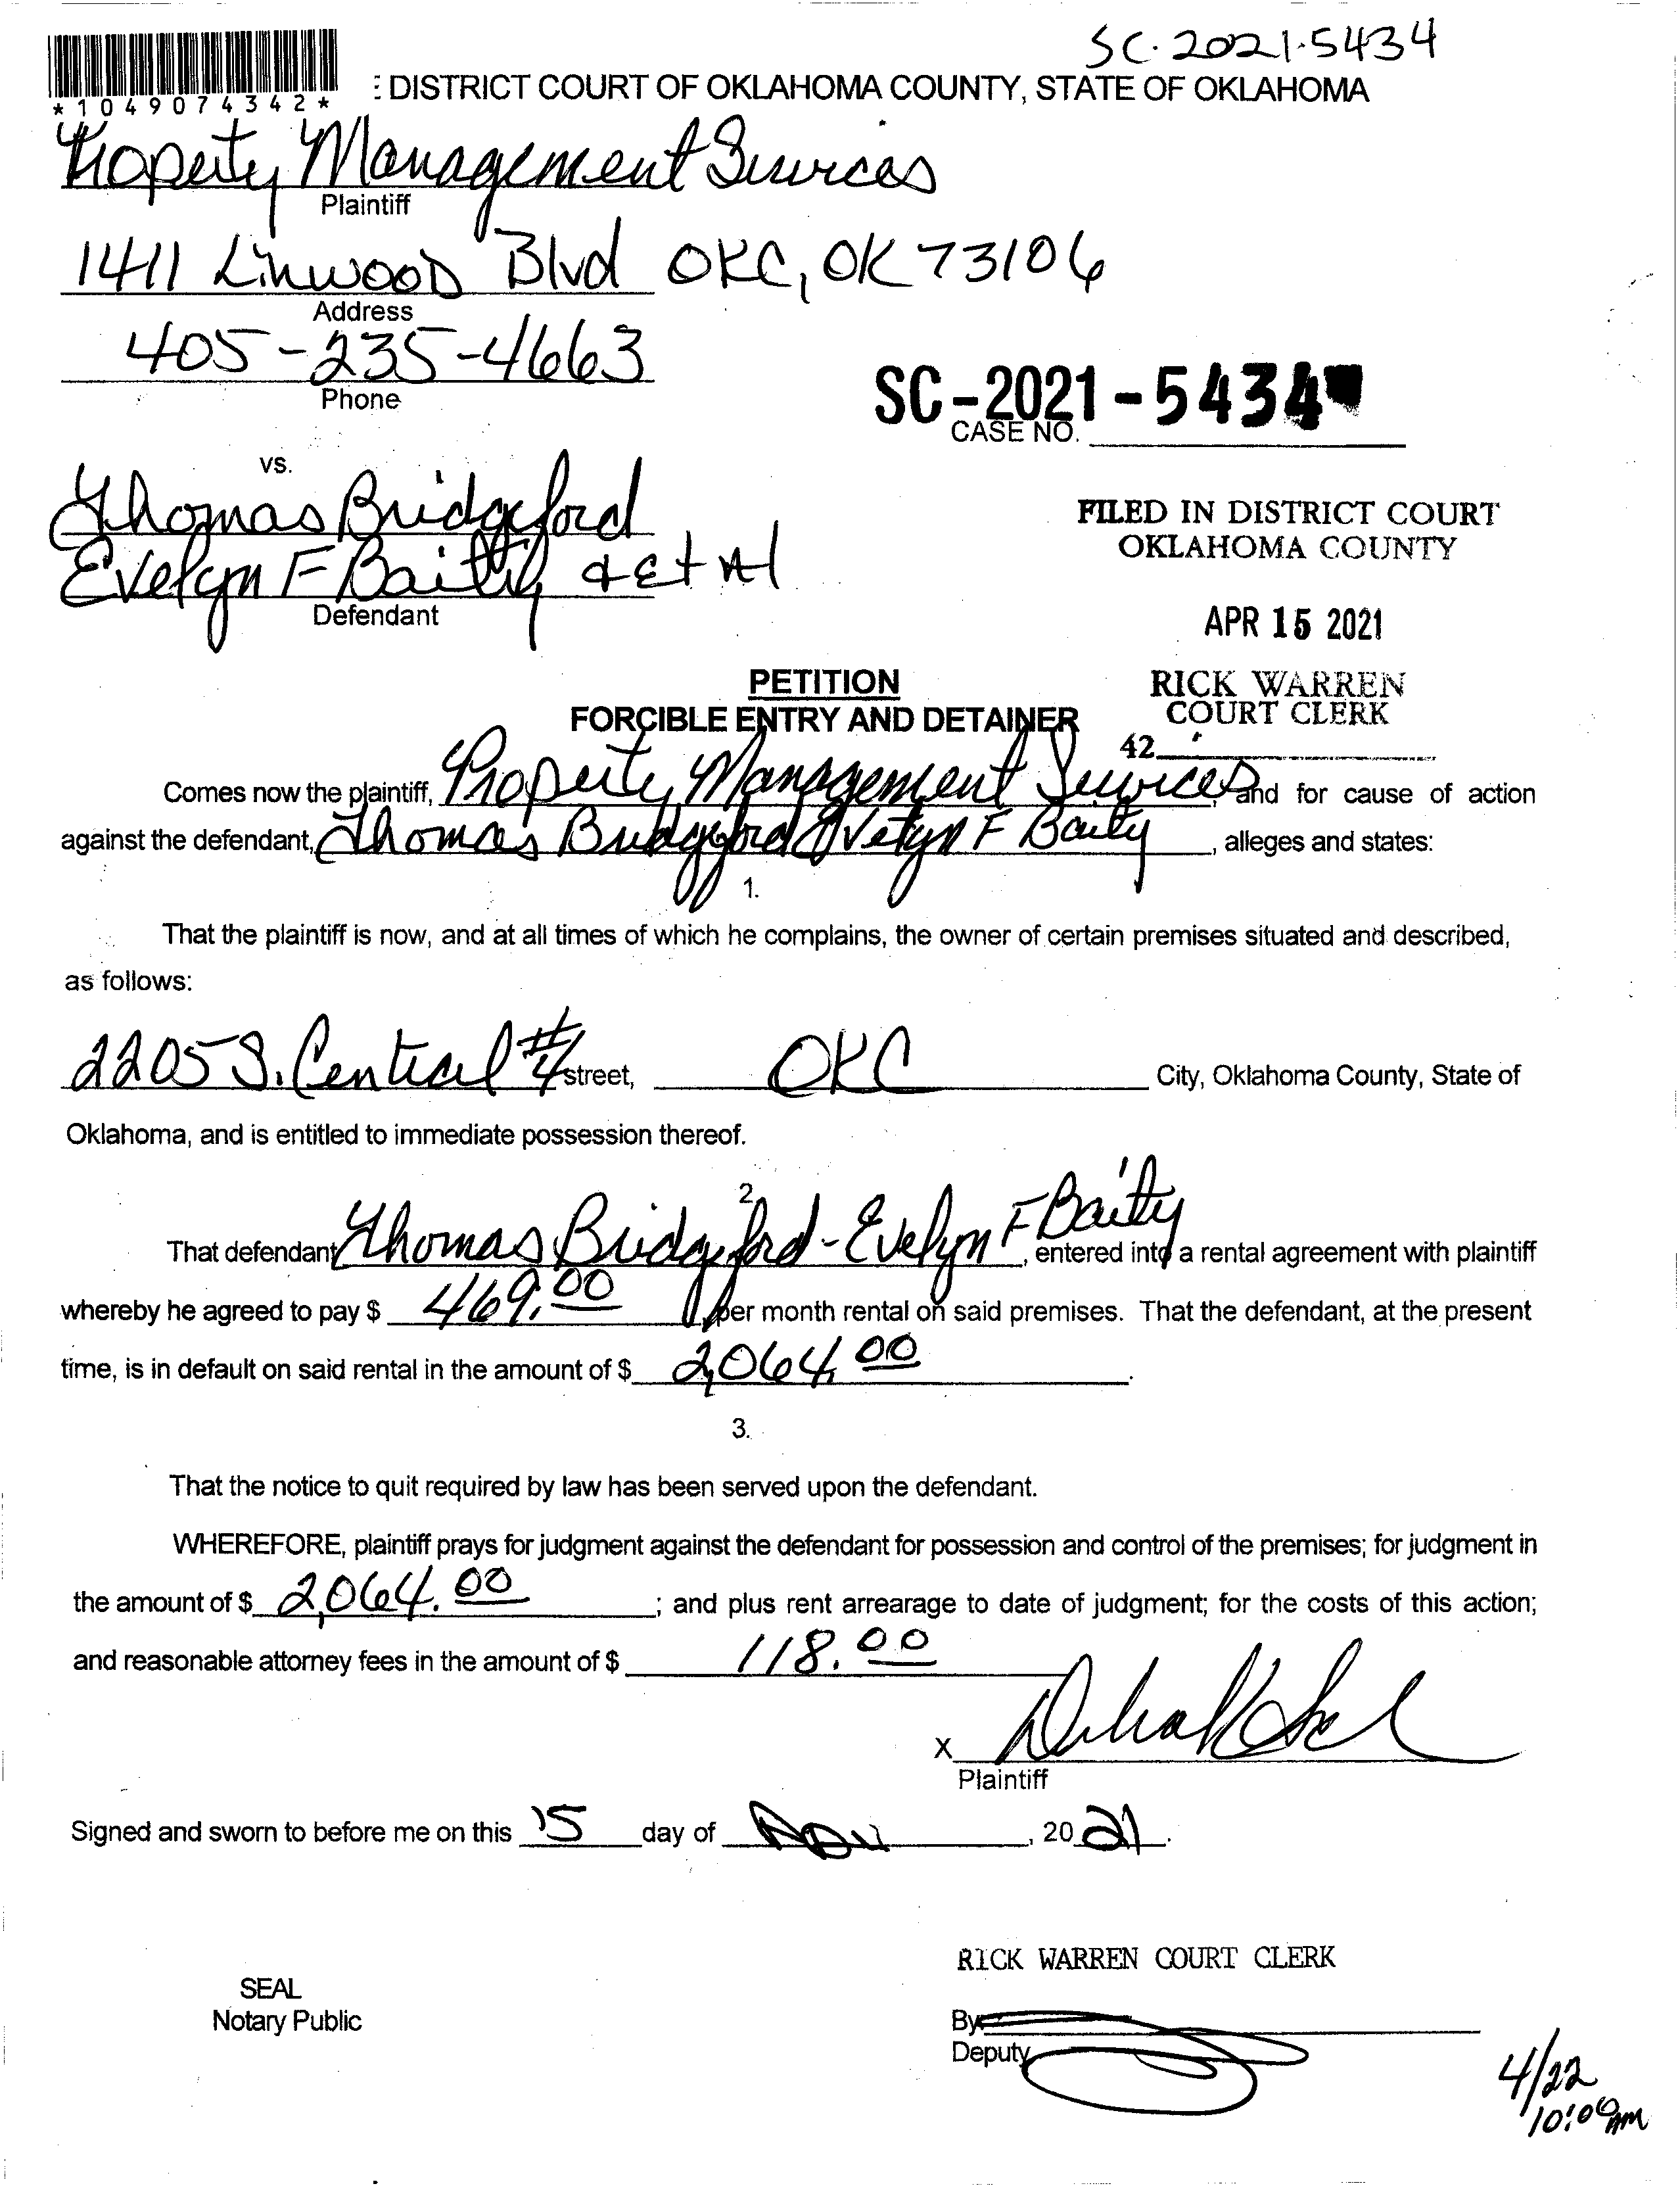 SC-2021-5434
*1049074342*
: DISTRICT COURT OF OKLAHOMA COUNTY, STATE OF OKLAHOMA
Property Management Services
Plaintiff
1411 Linwood Blvd OKC, OK 73106
Address
405-235-4663
Phone
SC-2021-5434
CASE NO.
vs.
Thomas Bridgeford
Evelyn F Baitty & Et Al
Defendant
FILED IN DISTRICT COURT
OKLAHOMA COUNTY
APR 15 2021
RICK WARREN
COURT CLERK
42
PETITION
FORCIBLE ENTRY AND DETAINER
Comes now the plaintiff, Property Management Services, and for cause of action
against the defendant, Thomas Bridgeford Evelyn F Baity, alleges and states:
1.
That the plaintiff is now, and at all times of which he complains, the owner of certain premises situated and described,
as follows:
2205 S. Central #4 street, OKC City, Oklahoma County, State of
Oklahoma, and is entitled to immediate possession thereof.
2.
That defendant Thomas Bridgeford - Evelyn F Baitty, entered into a rental agreement with plaintiff
whereby he agreed to pay $ 469.00 per month rental on said premises. That the defendant, at the present
time, is in default on said rental in the amount of $ 2,064.00.
3.
That the notice to quit required by law has been served upon the defendant.
WHEREFORE, plaintiff prays for judgment against the defendant for possession and control of the premises; for judgment in
the amount of $ 2,064.00; and plus rent arrearage to date of judgment; for the costs of this action;
and reasonable attorney fees in the amount of $ 118.00
X
Plaintiff
Signed and sworn to before me on this 15 day of , 2021.
RICK WARREN COURT CLERK
SEAL
Notary Public
By
Deputy
4/22
10:00 AM